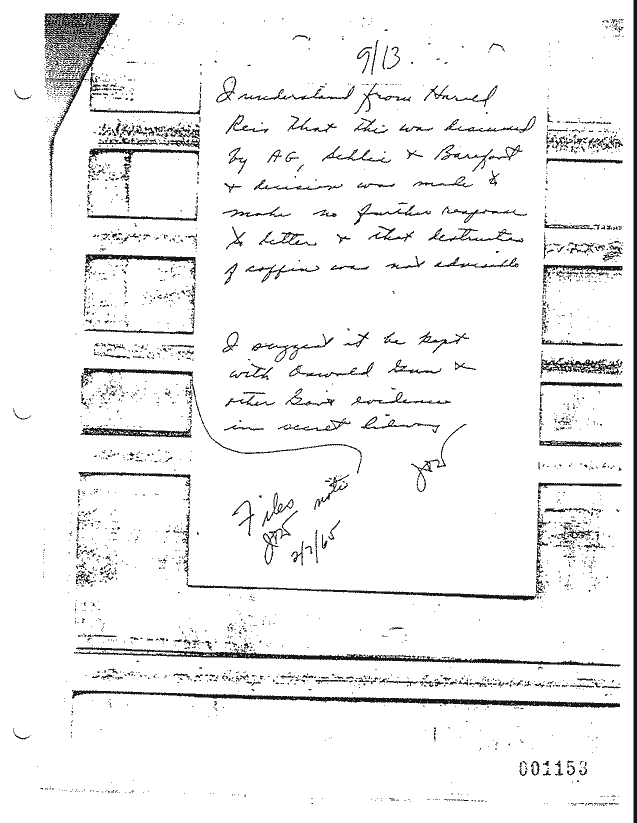 9/13
I understand from Harold
Reis that this was discussed
by AG, Schlei & Barefoot
& decision was made to
make no further response
to letter & that destruction
of coffin was not advisible
I suggest it be kept
with Oswald Gun &
other Gov't evidence
in secret
Files note
2/7/65
001153